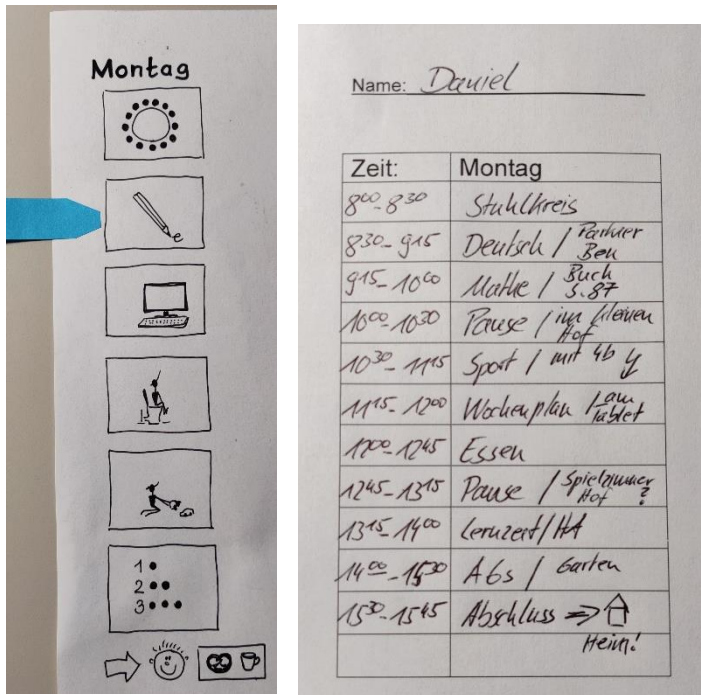 Montag
e
1
2
3
Name: Daniel
Zeit: Montag
8⁰⁰-8³⁰ Stuhlkreis
8³⁰-9¹⁵ Deutsch / Partner Ben
9¹⁵-10⁰⁰ Mathe / Buch S.87
10⁰⁰-10³⁰ Pause / im kleinen Hof
10³⁰-11¹⁵ Sport / mit 4b
11¹⁵-12⁰⁰ Wochenplan / am Tablet
12⁰⁰-12⁴⁵ Essen
12⁴⁵-13¹⁵ Pause / Spielzimmer Hof ?
13¹⁵-14⁰⁰ Lernzeit/HA
14⁰⁰-15³⁰ AGs / Garten
15³⁰-15⁴⁵ Abschluss ⇒
Heim!